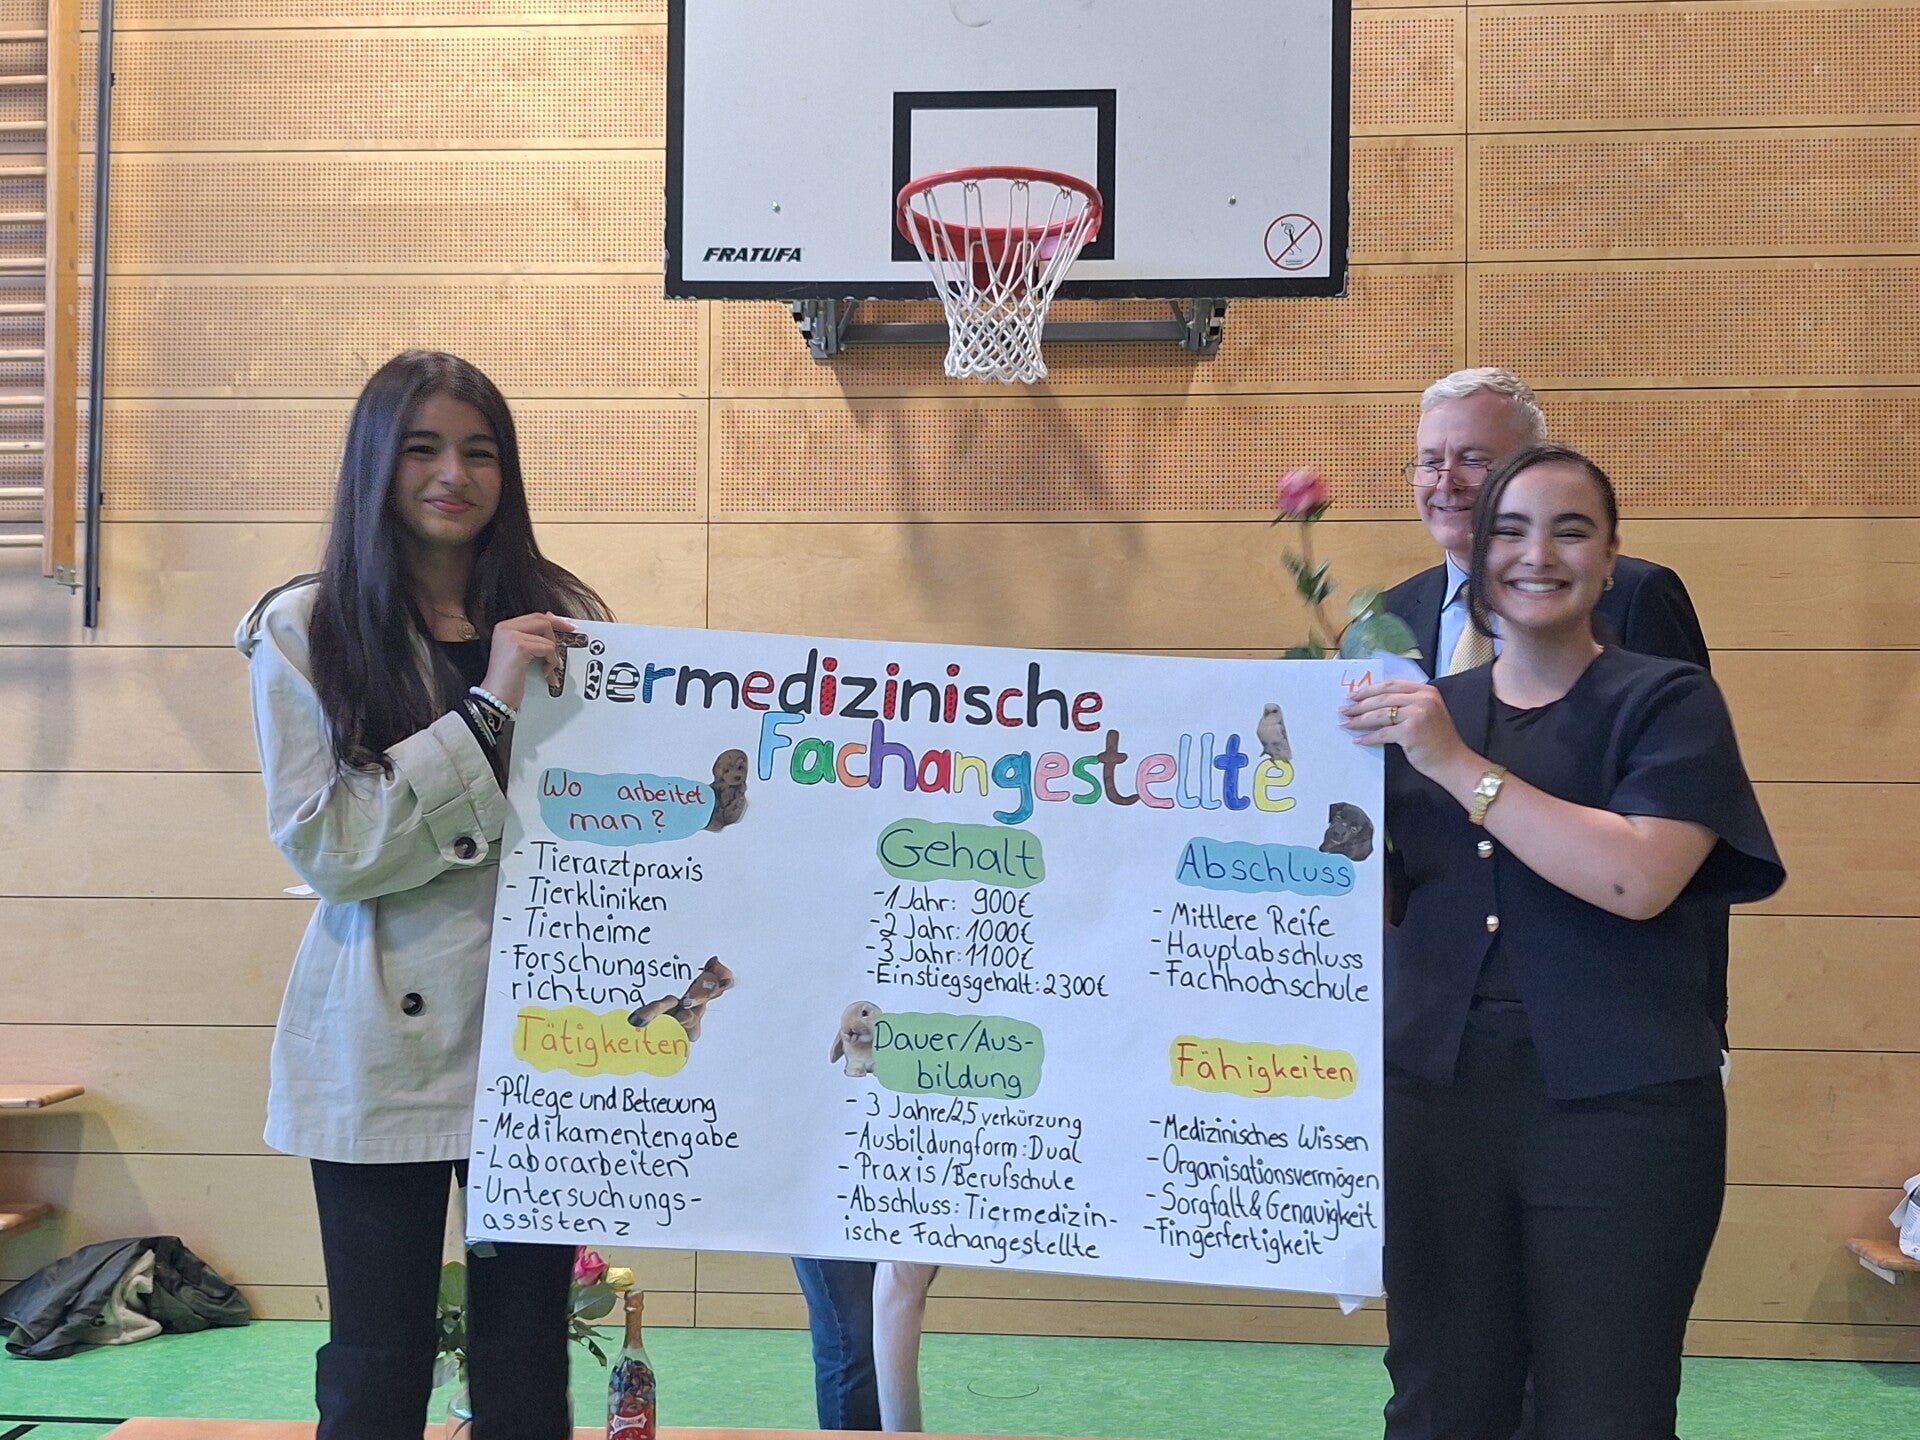 FRATUFA
Tiermedizinische
41
Fachangestellte
Wo arbeitet
man?
- Tierarztpraxis
- Tierkliniken
- Tierheime
- Forschungsein-
richtung
Tätigkeiten
- Pflege und Betreuung
- Medikamentengabe
- Laborarbeiten
- Untersuchungs-
assistenz
Gehalt
- 1 Jahr: 900€
- 2 Jahr: 1000€
- 3 Jahr: 1100€
- Einstiegsgehalt: 2300€
Dauer/Aus-
bildung
- 3 Jahre/2,5 verkürzung
- Ausbildungform: Dual
- Praxis/Berufschule
- Abschluss: Tiermedizin-
ische Fachangestellte
Abschluss
- Mittlere Reife
- Hauptabschluss
- Fachhochschule
Fähigkeiten
- Medizinisches Wissen
- Organisationsvermögen
- Sorgfalt & Genauigkeit
- Fingerfertigkeit